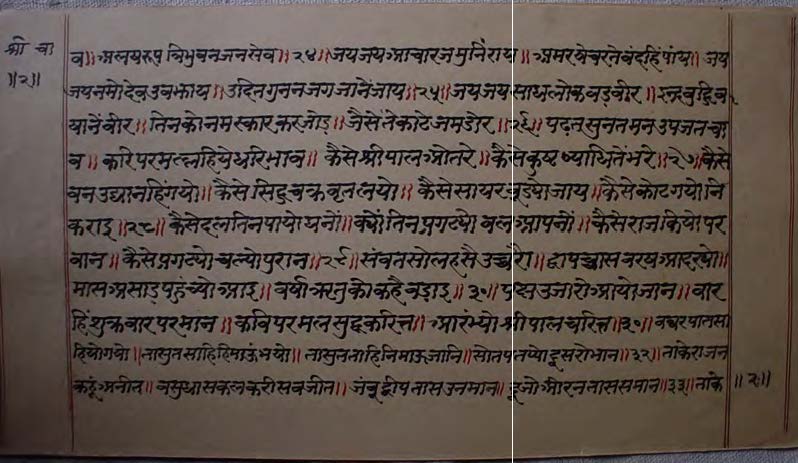 श्री चा
॥२॥
व॥ अलयरूप त्रिभुवनजनसेव॥२४॥ जयजय आचारजमुनिराय॥ अमरषेचरनेवंदहिंपाय॥ जय
जयनमोदेवउवझाय॥ उदितगुननजगजानेंजाय॥२५॥ जयजयसाधलोकवडवीर॥
यानेंवीर॥ तिनकोनमस्कारकरजोड॥ जैसेंतेकाटेजमडोर॥२६॥ पढतसुनतमनउपजतचा
व॥ करिपरमतत्वहियेधरिभाव॥ कैसेश्रीपालओतरे॥ कैसेकुष्टव्याधितेंभरे॥२७॥ कैसे
वनउद्यानहिंगयो॥ कैसेसिद्धचक्रवृतलयो॥ कैसेसायरबूड्योजाय॥ कैसेकोटगयोनि
कराइ॥२८॥ कैसेदलतिनपायोघनों॥ क्योंतिनप्रगट्योवलआपनों॥ कैसेराजकियोपर
वान॥ कैसेप्रगट्योचल्योपुरान॥२९॥ संवतसोलहसैउच्चरौ॥
मासअसाडपहुच्योआइ॥ वर्षाऋतुकोकहैवडाइ॥३०॥ पक्षउजारोआयोजान॥ वार
हिंशुक्रवारपरमान॥ कविपरमलसुद्धकरिचित्त॥ आरंभ्योश्रीपालचरित्त॥३०॥ वव्वरपातसा
हिहोयगयो॥ तासुतसाहिहिमाऊंभयो॥ तासुतनाहि सोतपतप्योदूसरोभान॥३२॥ ताकेराजन
कहूंअनीत॥ वसुधासकलकरीसवजीत॥ जंबूद्वीपतासउनमान॥ दूजोऔरनताससमान॥३३॥ ताके
॥२॥